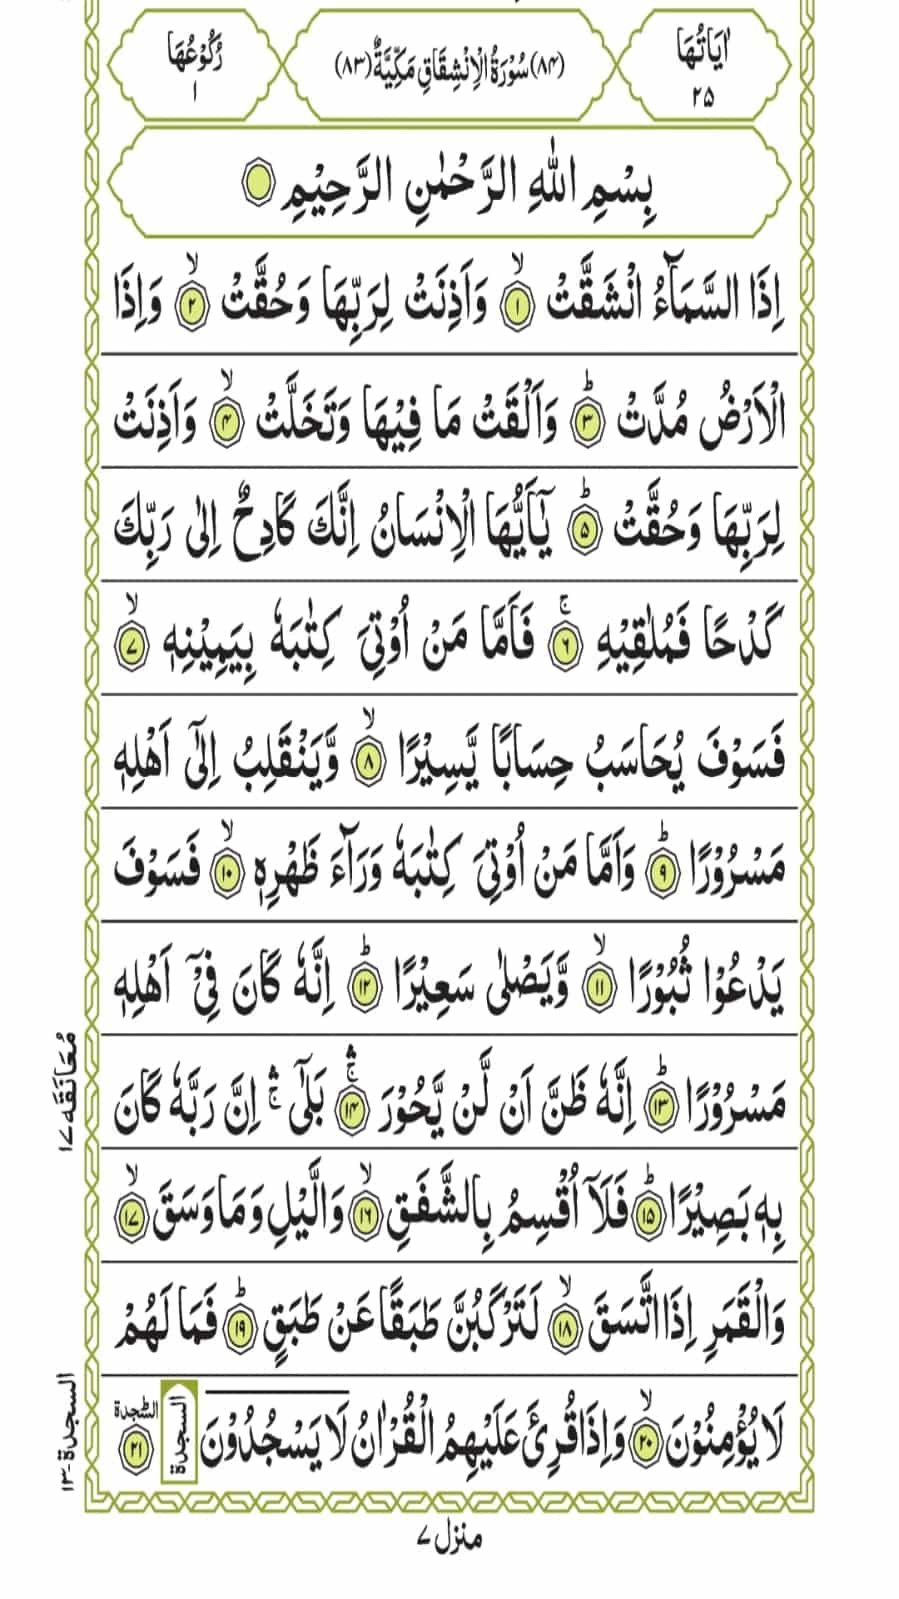 اٰيَاتُهَا ٢٥
(٨٤) سُوْرَةُ الْاِنْشِقَاقِ مَكِّيَّةٌ (٨٣)
رُكُوْعُهَا ١
بِسْمِ اللّٰهِ الرَّحْمٰنِ الرَّحِيْمِ
اِذَا السَّمَآءُ انْشَقَّتْ ۙ﴿١﴾ وَاَذِنَتْ لِرَبِّهَا وَحُقَّتْ ۙ﴿٢﴾ وَاِذَا
الْاَرْضُ مُدَّتْ ؕ﴿٣﴾ وَاَلْقَتْ مَا فِيْهَا وَتَخَلَّتْ ۙ﴿٤﴾ وَاَذِنَتْ
لِرَبِّهَا وَحُقَّتْ ؕ﴿٥﴾ يٰۤاَيُّهَا الْاِنْسَانُ اِنَّكَ كَادِحٌ اِلٰى رَبِّكَ
كَدْحًا فَمُلٰقِيْهِ ۚ﴿٦﴾ فَاَمَّا مَنْ اُوْتِيَ كِتٰبَهٗ بِيَمِيْنِهٖ ۙ﴿٧﴾
فَسَوْفَ يُحَاسَبُ حِسَابًا يَّسِيْرًا ۙ﴿٨﴾ وَّيَنْقَلِبُ اِلٰۤى اَهْلِهٖ
مَسْرُوْرًا ؕ﴿٩﴾ وَاَمَّا مَنْ اُوْتِيَ كِتٰبَهٗ وَرَآءَ ظَهْرِهٖ ۙ﴿١٠﴾ فَسَوْفَ
يَدْعُوْا ثُبُوْرًا ۙ﴿١١﴾ وَّيَصْلٰى سَعِيْرًا ؕ﴿١٢﴾ اِنَّهٗ كَانَ فِيْۤ اَهْلِهٖ
مَسْرُوْرًا ؕ﴿١٣﴾ اِنَّهٗ ظَنَّ اَنْ لَّنْ يَّحُوْرَ ۛۚ﴿١٤﴾ بَلٰۤى ۛۚ اِنَّ رَبَّهٗ كَانَ
مُعَانَقَه ١٧
بِهٖ بَصِيْرًا ؕ﴿١٥﴾ فَلَاۤ اُقْسِمُ بِالشَّفَقِ ۙ﴿١٦﴾ وَالَّيْلِ وَمَا وَسَقَ ۙ﴿١٧﴾
وَالْقَمَرِ اِذَا اتَّسَقَ ۙ﴿١٨﴾ لَتَرْكَبُنَّ طَبَقًا عَنْ طَبَقٍ ؕ﴿١٩﴾ فَمَا لَهُمْ
لَا يُؤْمِنُوْنَ ۙ﴿٢٠﴾ وَاِذَا قُرِئَ عَلَيْهِمُ الْقُرْاٰنُ لَا يَسْجُدُوْنَ السجدة السّجدة ﴿٢١﴾
السجدة-١٣
منزل ٧